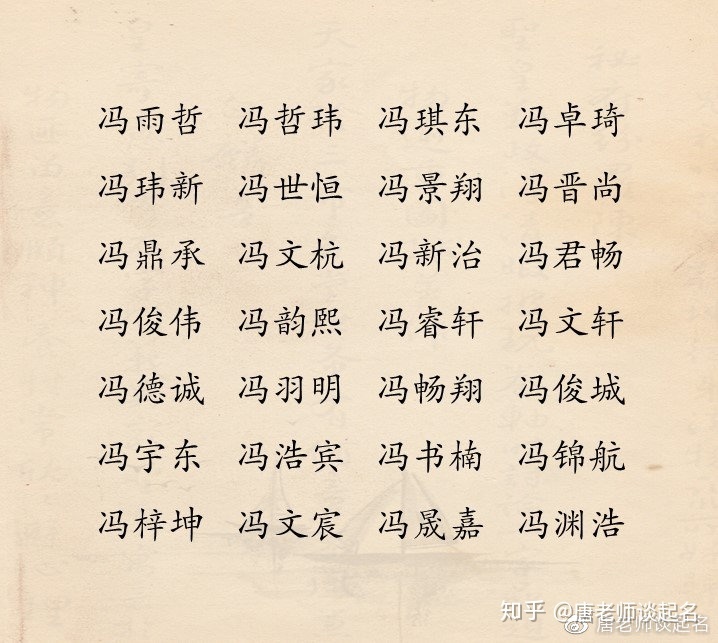 冯雨哲 冯哲玮 冯琪东 冯卓琦
冯玮新 冯世恒 冯景翔 冯晋尚
冯鼎承 冯文杭 冯新治 冯君畅
冯俊伟 冯韵熙 冯睿轩 冯文轩
冯德诚 冯羽明 冯畅翔 冯俊城
冯宇东 冯浩宾 冯书楠 冯锦航
冯梓坤 冯文宸 冯晟嘉 冯渊浩
知乎 @唐老师谈起名
唐老师谈起名